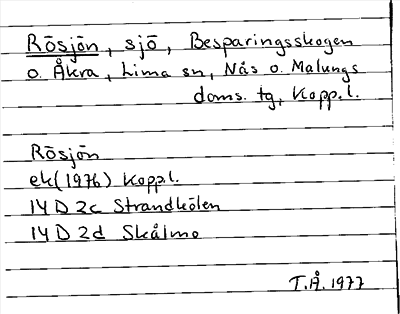 Rösjön, sjö, Besparingsskogen
o. Åkra, Lima sn, Nås o. Malungs
doms. tg, Kopp.l.
Rösjön
ek (1976) Koppl.
14 D 2c Strandkölen
14 D 2d Skålmo
T.Å. 1977